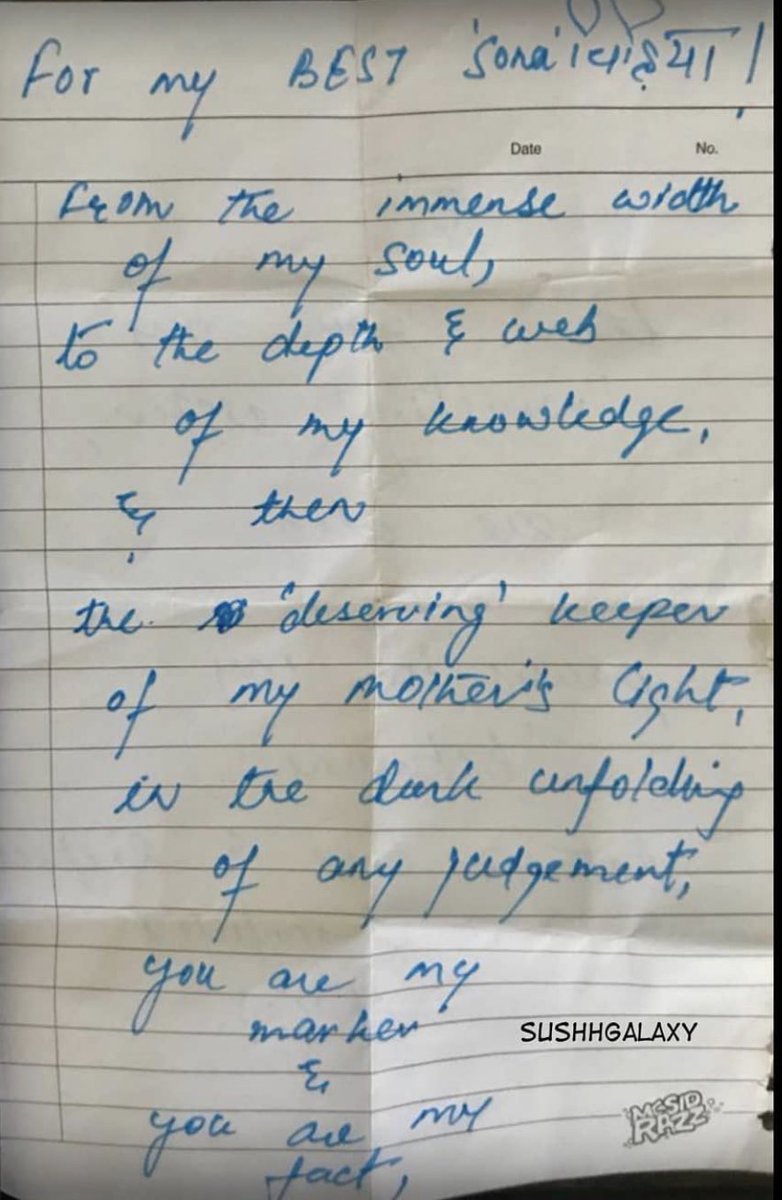 For my BEST 'Sona' भाईया !
Date No.
From the immense width
of my soul,
to the depth & web
of my knowledge,
& then
the 'deserving' keeper
of my mother's light,
in the dark unfolding
of any judgement,
you are my
marker
SUSHHGALAXY
&
you are my
MCSID
RAZZ
fact,